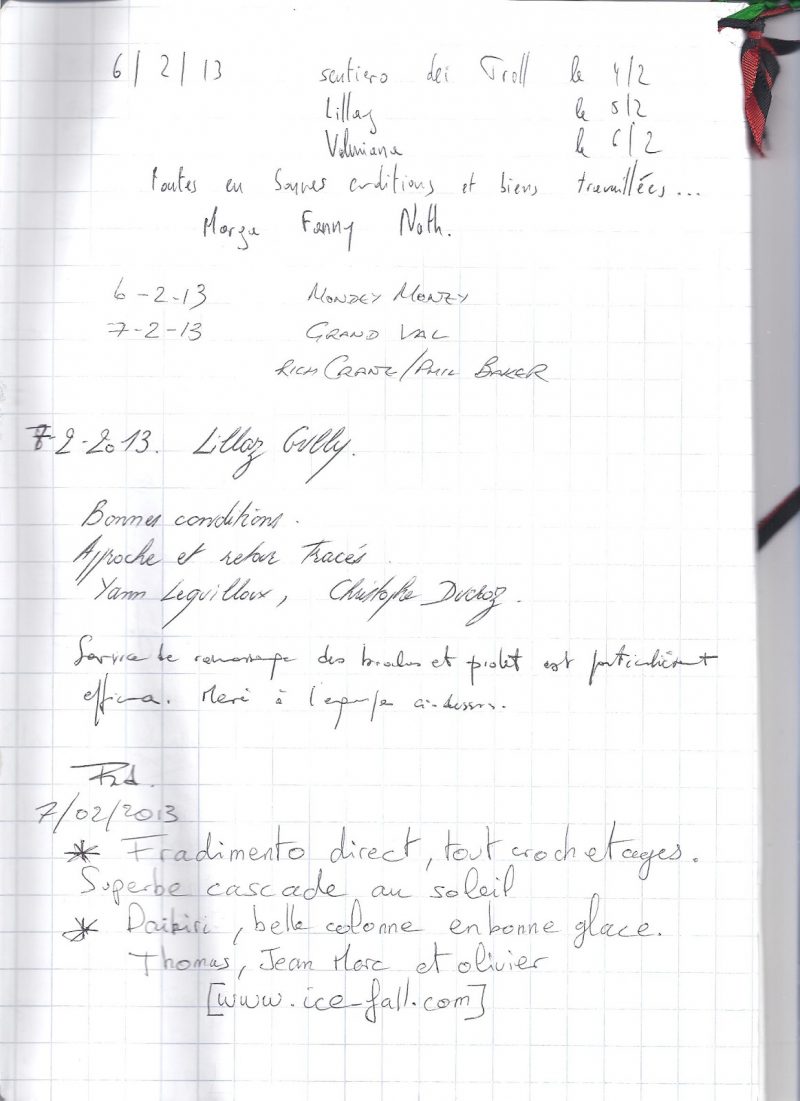 6/2/13 sentiero dei Troll le 4/2
Lillaz le 5/2
Valmiana le 6/2
toutes en bonnes conditions et biens travaillées...
Marga Fanny Nath.
6-2-13 MONDEY MONEY
7-2-13 GRAND VAL
RICH CRANE/PHIL BAKER
7-2-2013. Lillaz Gully.
Bonnes conditions.
Approche et retour Tracés.
Yann Leguilloux, Christophe Ducroz.
Service de ramassage des broches et piolet est particulièrement
efficace. Merci à l'équipe ci-dessus.
7/02/2013
* Fradimento direct, tout crochetages.
Superbe cascade au soleil
* Daikiri, belle colonne en bonne glace.
Thomas, Jean Marc et olivier
[www.ice-fall.com]